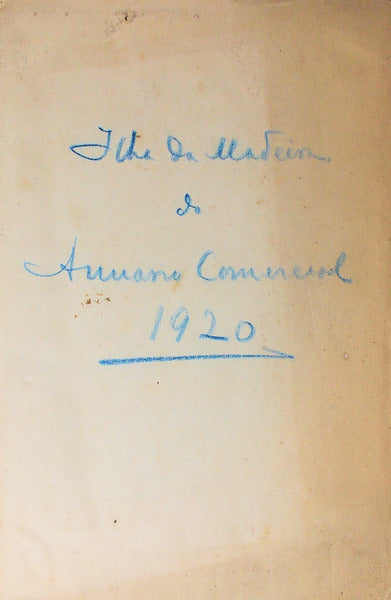 Ilha da Madeira
do
Annuario Comercial
1920